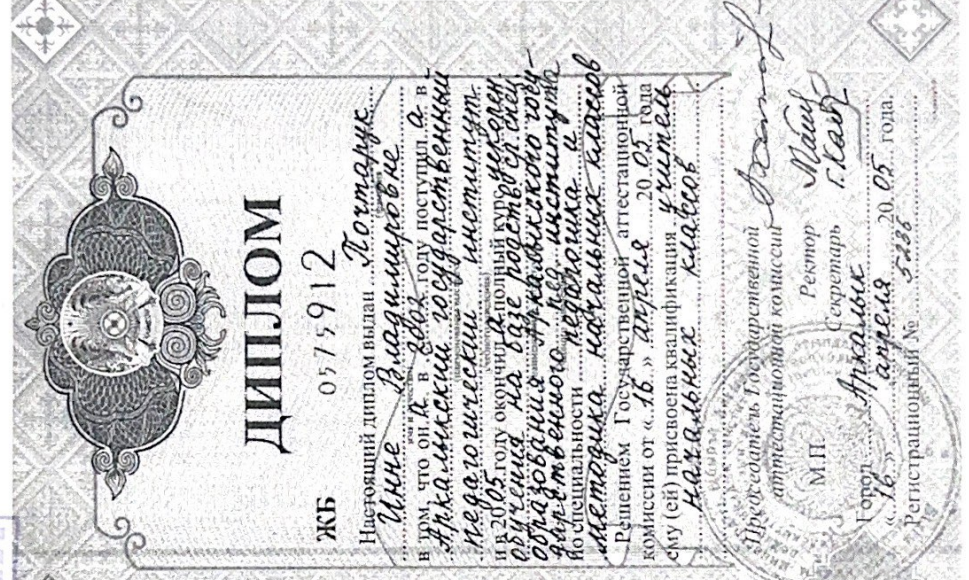 ДИПЛОМ
ЖБ 0575912
Настоящий диплом выдан Почтарук
Инне Владимировне
в том, что он а в 2002 году поступил а в
Аркалыкский государственный
педагогический институт
и в 2005 году окончил а полный курс ускорен.
обучения на базе родств. ср. спец.
образования Аркалыкского госу-
дарственного пед. института
по специальности педагогика и
методика начальных классов
Решением Государственной аттестационной
комиссии от «16» апреля 2005 года
ему (ей) присвоена квалификация учитель
начальных классов
Председатель Государственной
аттестационной комиссии
Ректор
М.П. Секретарь
Город Аркалык
«16» апреля 2005 года.
Регистрационный №